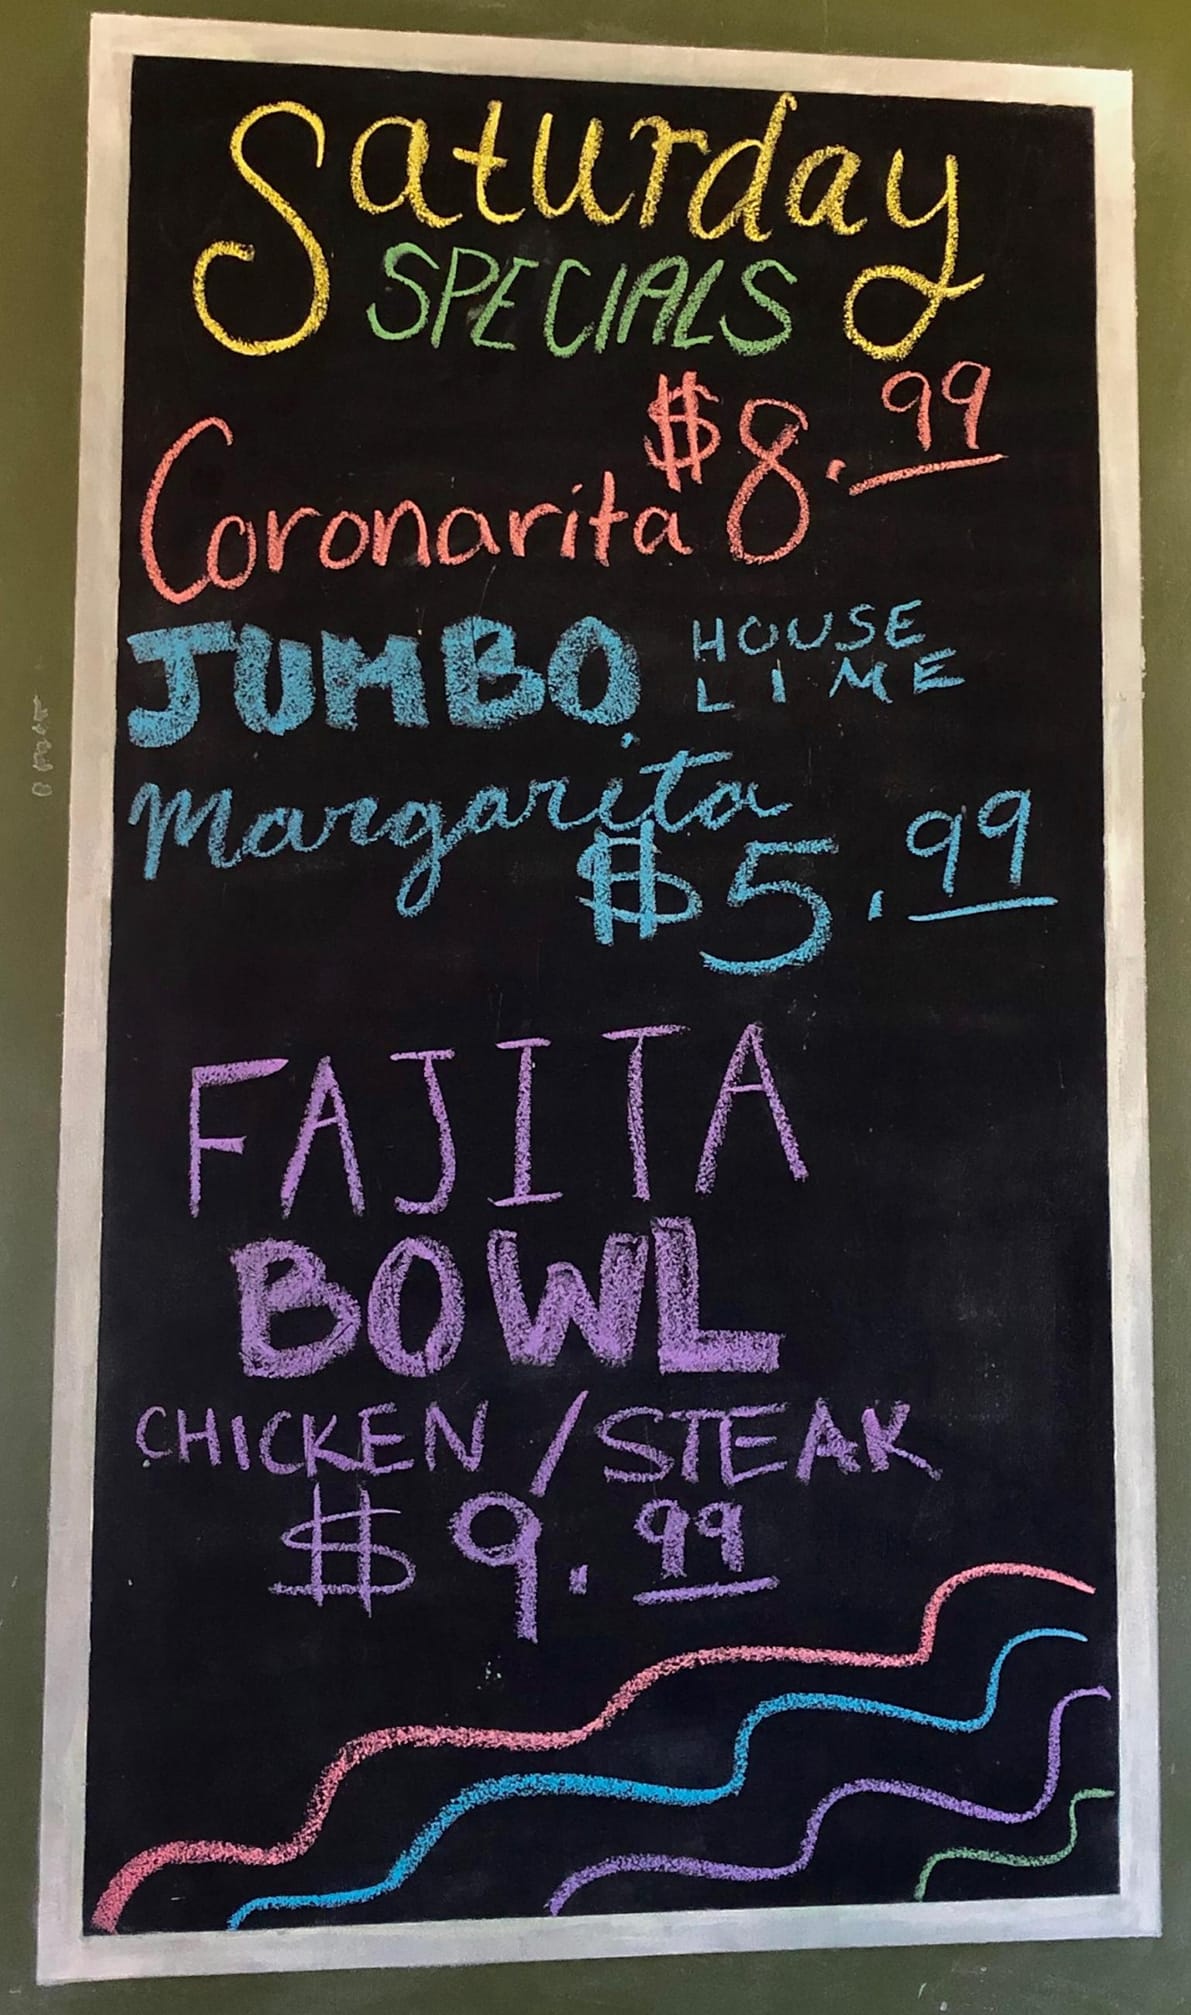 Saturday
SPECIALS
Coronarita $8.99
JUMBO HOUSE
LIME
Margarita
$5.99
FAJITA
BOWL
CHICKEN / STEAK
$9.99